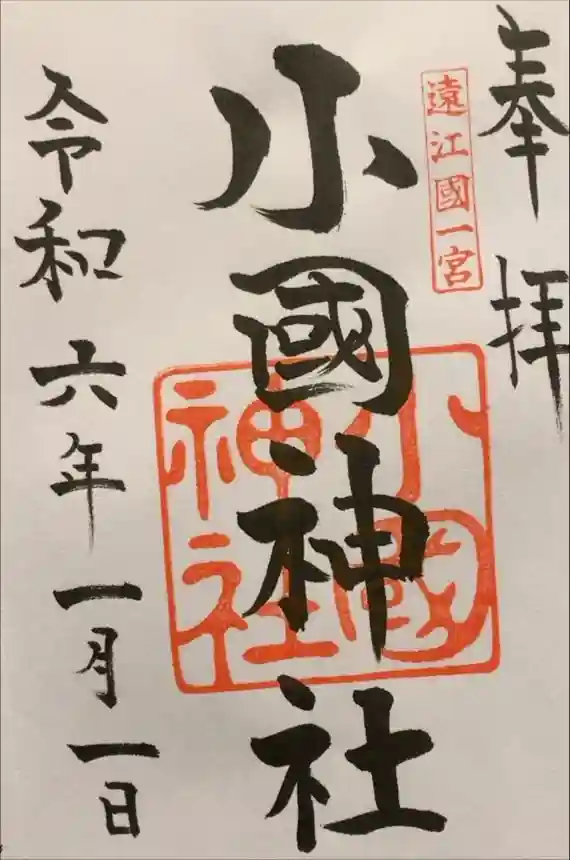 奉拝
遠江國一宮
小國神社
小國
神社
令和六年一月一日